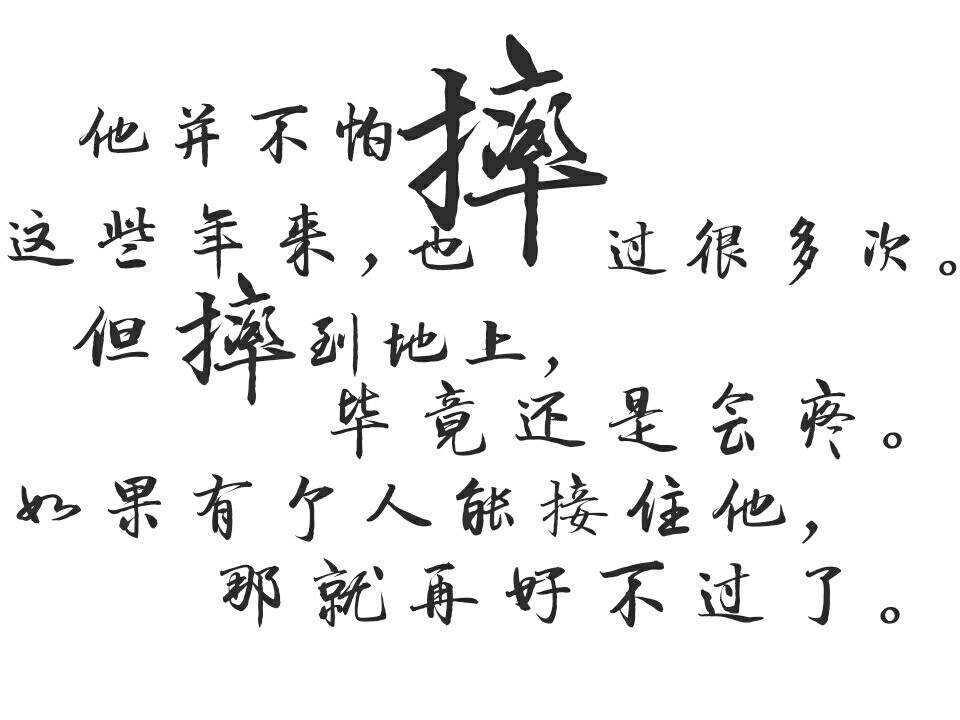 他并不怕摔
这些年来,也摔过很多次。
但摔到地上,
毕竟还是会疼。
如果有个人能接住他,
那就再好不过了。